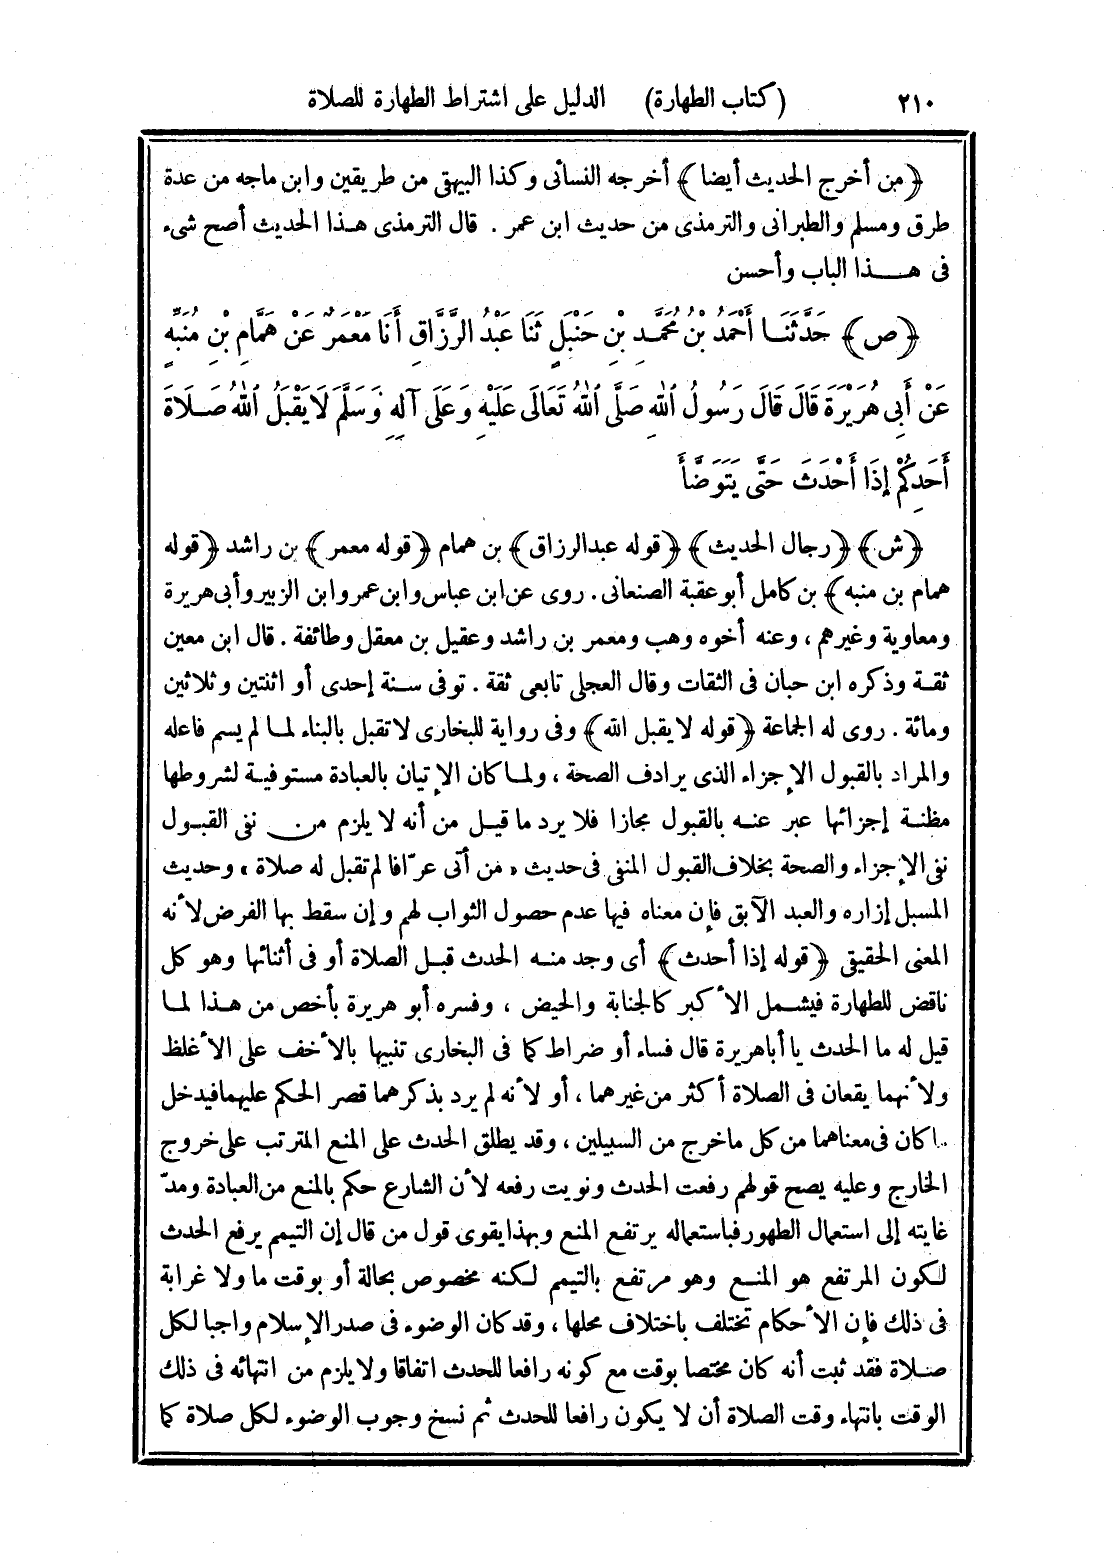 ٢١٠ (كتاب الطهارة) الدليل على اشتراط الطهارة للصلاة
﴿من أخرج الحديث أيضا﴾ أخرجه النسائى وكذا البيهقى من طريقين وابن ماجه من عدة
طرق ومسلم والطبرانى والترمذى من حديث ابن عمر . قال الترمذى هذا الحديث أصح شىء
فى هذا الباب وأحسن
﴿ص﴾ حَدَّثَنَا أَحْمَدُ بْنُ مُحَمَّدِ بْنِ حَنْبَلٍ ثَنَا عَبْدُ الرَّزَّاقِ أَنَا مَعْمَرٌ عَنْ هَمَّامِ بْنِ مُنَبِّهٍ
عَنْ أَبِى هُرَيْرَةَ قَالَ قَالَ رَسُولُ اللهِ صَلَّى اللهُ تَعَالَى عَلَيْهِ وَعَلَى آلِهِ وَسَلَّمَ لَا يَقْبَلُ اللهُ صَلَاةَ
أَحَدِكُمْ إِذَا أَحْدَثَ حَتَّى يَتَوَضَّأَ
﴿ش﴾ ﴿رجال الحديث﴾ ﴿قوله عبدالرزاق﴾ بن همام ﴿قوله معمر﴾ بن راشد ﴿قوله
همام بن منبه﴾ بن كامل أبو عقبة الصنعانى . روى عن ابن عباس وابن عمر وابن الزبير وأبى هريرة
ومعاوية وغيرهم ، وعنه أخوه وهب ومعمر بن راشد وعقيل بن معقل وطائفة . قال ابن معين
ثقة وذكره ابن حبان فى الثقات وقال العجلى تابعى ثقة . توفى سنة إحدى أو اثنتين وثلاثين
ومائة . روى له الجماعة ﴿قوله لا يقبل الله﴾ وفى رواية للبخارى لا تقبل بالبناء لما لم يسم فاعله
والمراد بالقبول الإجزاء الذى يرادف الصحة ، ولما كان الإتيان بالعبادة مستوفية لشروطها
مظنة إجزائها عبر عنه بالقبول مجازا فلا يرد ما قيل من أنه لا يلزم من نفى القبول
نفى الإجزاء والصحة بخلاف القبول المنفى فى حديث « من أتى عرّافا لم تقبل له صلاة » وحديث
المسبل إزاره والعبد الآبق فإن معناه فيها عدم حصول الثواب لهم وإن سقط بها الفرض لأنه
المعنى الحقيقى ﴿قوله إذا أحدث﴾ أى وجد منه الحدث قبل الصلاة أو فى أثنائها وهو كل
ناقض للطهارة فيشمل الأكبر كالجنابة والحيض ، وفسره أبو هريرة بأخص من هذا لما
قيل له ما الحدث يا أباهريرة قال فساء أو ضراط كما فى البخارى تنبيها بالأخف على الأغلظ
ولأنهما يقعان فى الصلاة أكثر من غيرهما ، أو لأنه لم يرد بذكرهما قصر الحكم عليهما فيدخل
ما كان فى معناهما من كل ما خرج من السبيلين ، وقد يطلق الحدث على المنع المترتب على خروج
الخارج وعليه يصح قولهم رفعت الحدث ونويت رفعه لأن الشارع حكم بالمنع من العبادة ومدّ
غايته إلى استعمال الطهور فباستعماله يرتفع المنع وبهذا يقوى قول من قال إن التيمم يرفع الحدث
لكون المرتفع هو المنع وهو مرتفع بالتيمم لكنه مخصوص بحالة أو بوقت ما ولا غرابة
فى ذلك فإن الأحكام تختلف باختلاف محلها ، وقد كان الوضوء فى صدر الإسلام واجبا لكل
صلاة فقد ثبت أنه كان مختصا بوقت مع كونه رافعا للحدث اتفاقا ولا يلزم من انتهائه فى ذلك
الوقت بانتهاء وقت الصلاة أن لا يكون رافعا للحدث ثم نسخ وجوب الوضوء لكل صلاة كما